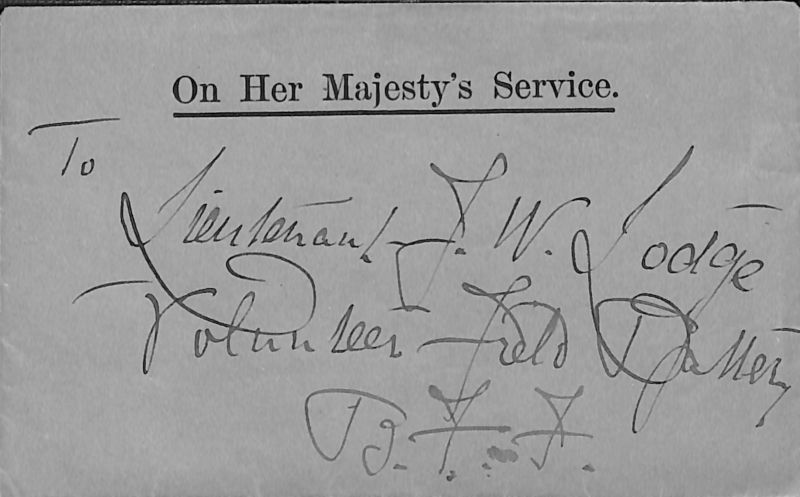 On Her Majesty's Service.
To
Lieutenant F. W. Lodge
Volunteer Field Battery
B. F. F.